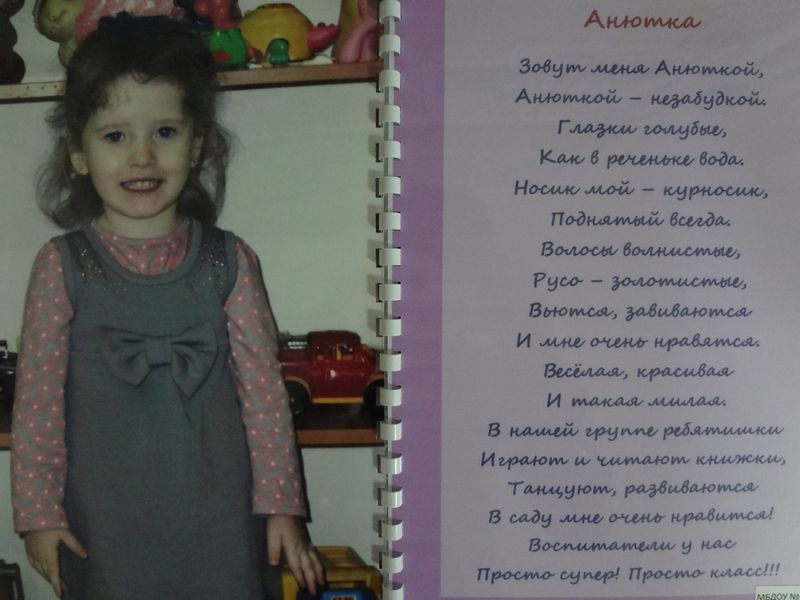 Анютка
Зовут меня Анюткой,
Анюткой – незабудкой.
Глазки голубые,
Как в реченьке вода.
Носик мой – курносик,
Поднятый всегда.
Волосы волнистые,
Русо – золотистые,
Вьются, завиваются
И мне очень нравятся.
Весёлая, красивая
И такая милая.
В нашей группе ребятишки
Играют и читают книжки,
Танцуют, развиваются
В саду мне очень нравится!
Воспитатели у нас
Просто супер! Просто класс!!!
МБДОУ №